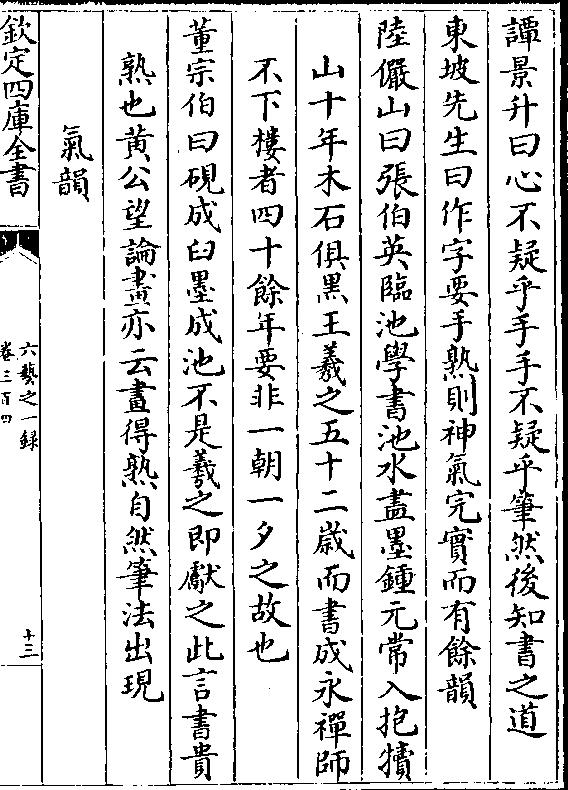 譚景升曰心不疑乎手手不疑乎筆然後知書之道
東坡先生曰作字要手熟則神氣完實而有餘韻
陸儼山曰張伯英臨池學書池水盡墨鍾元常入抱犢
山十年木石俱黑王羲之五十二歲而書成永禪師
不下樓者四十餘年要非一朝一夕之故也
董宗伯曰硯成臼墨成池不是羲之即獻之此言書貴
熟也黄公望論畫亦云畫得熟自然筆法出現
氣韻
欽定四庫全書
六藝之一録
卷三百四
十三